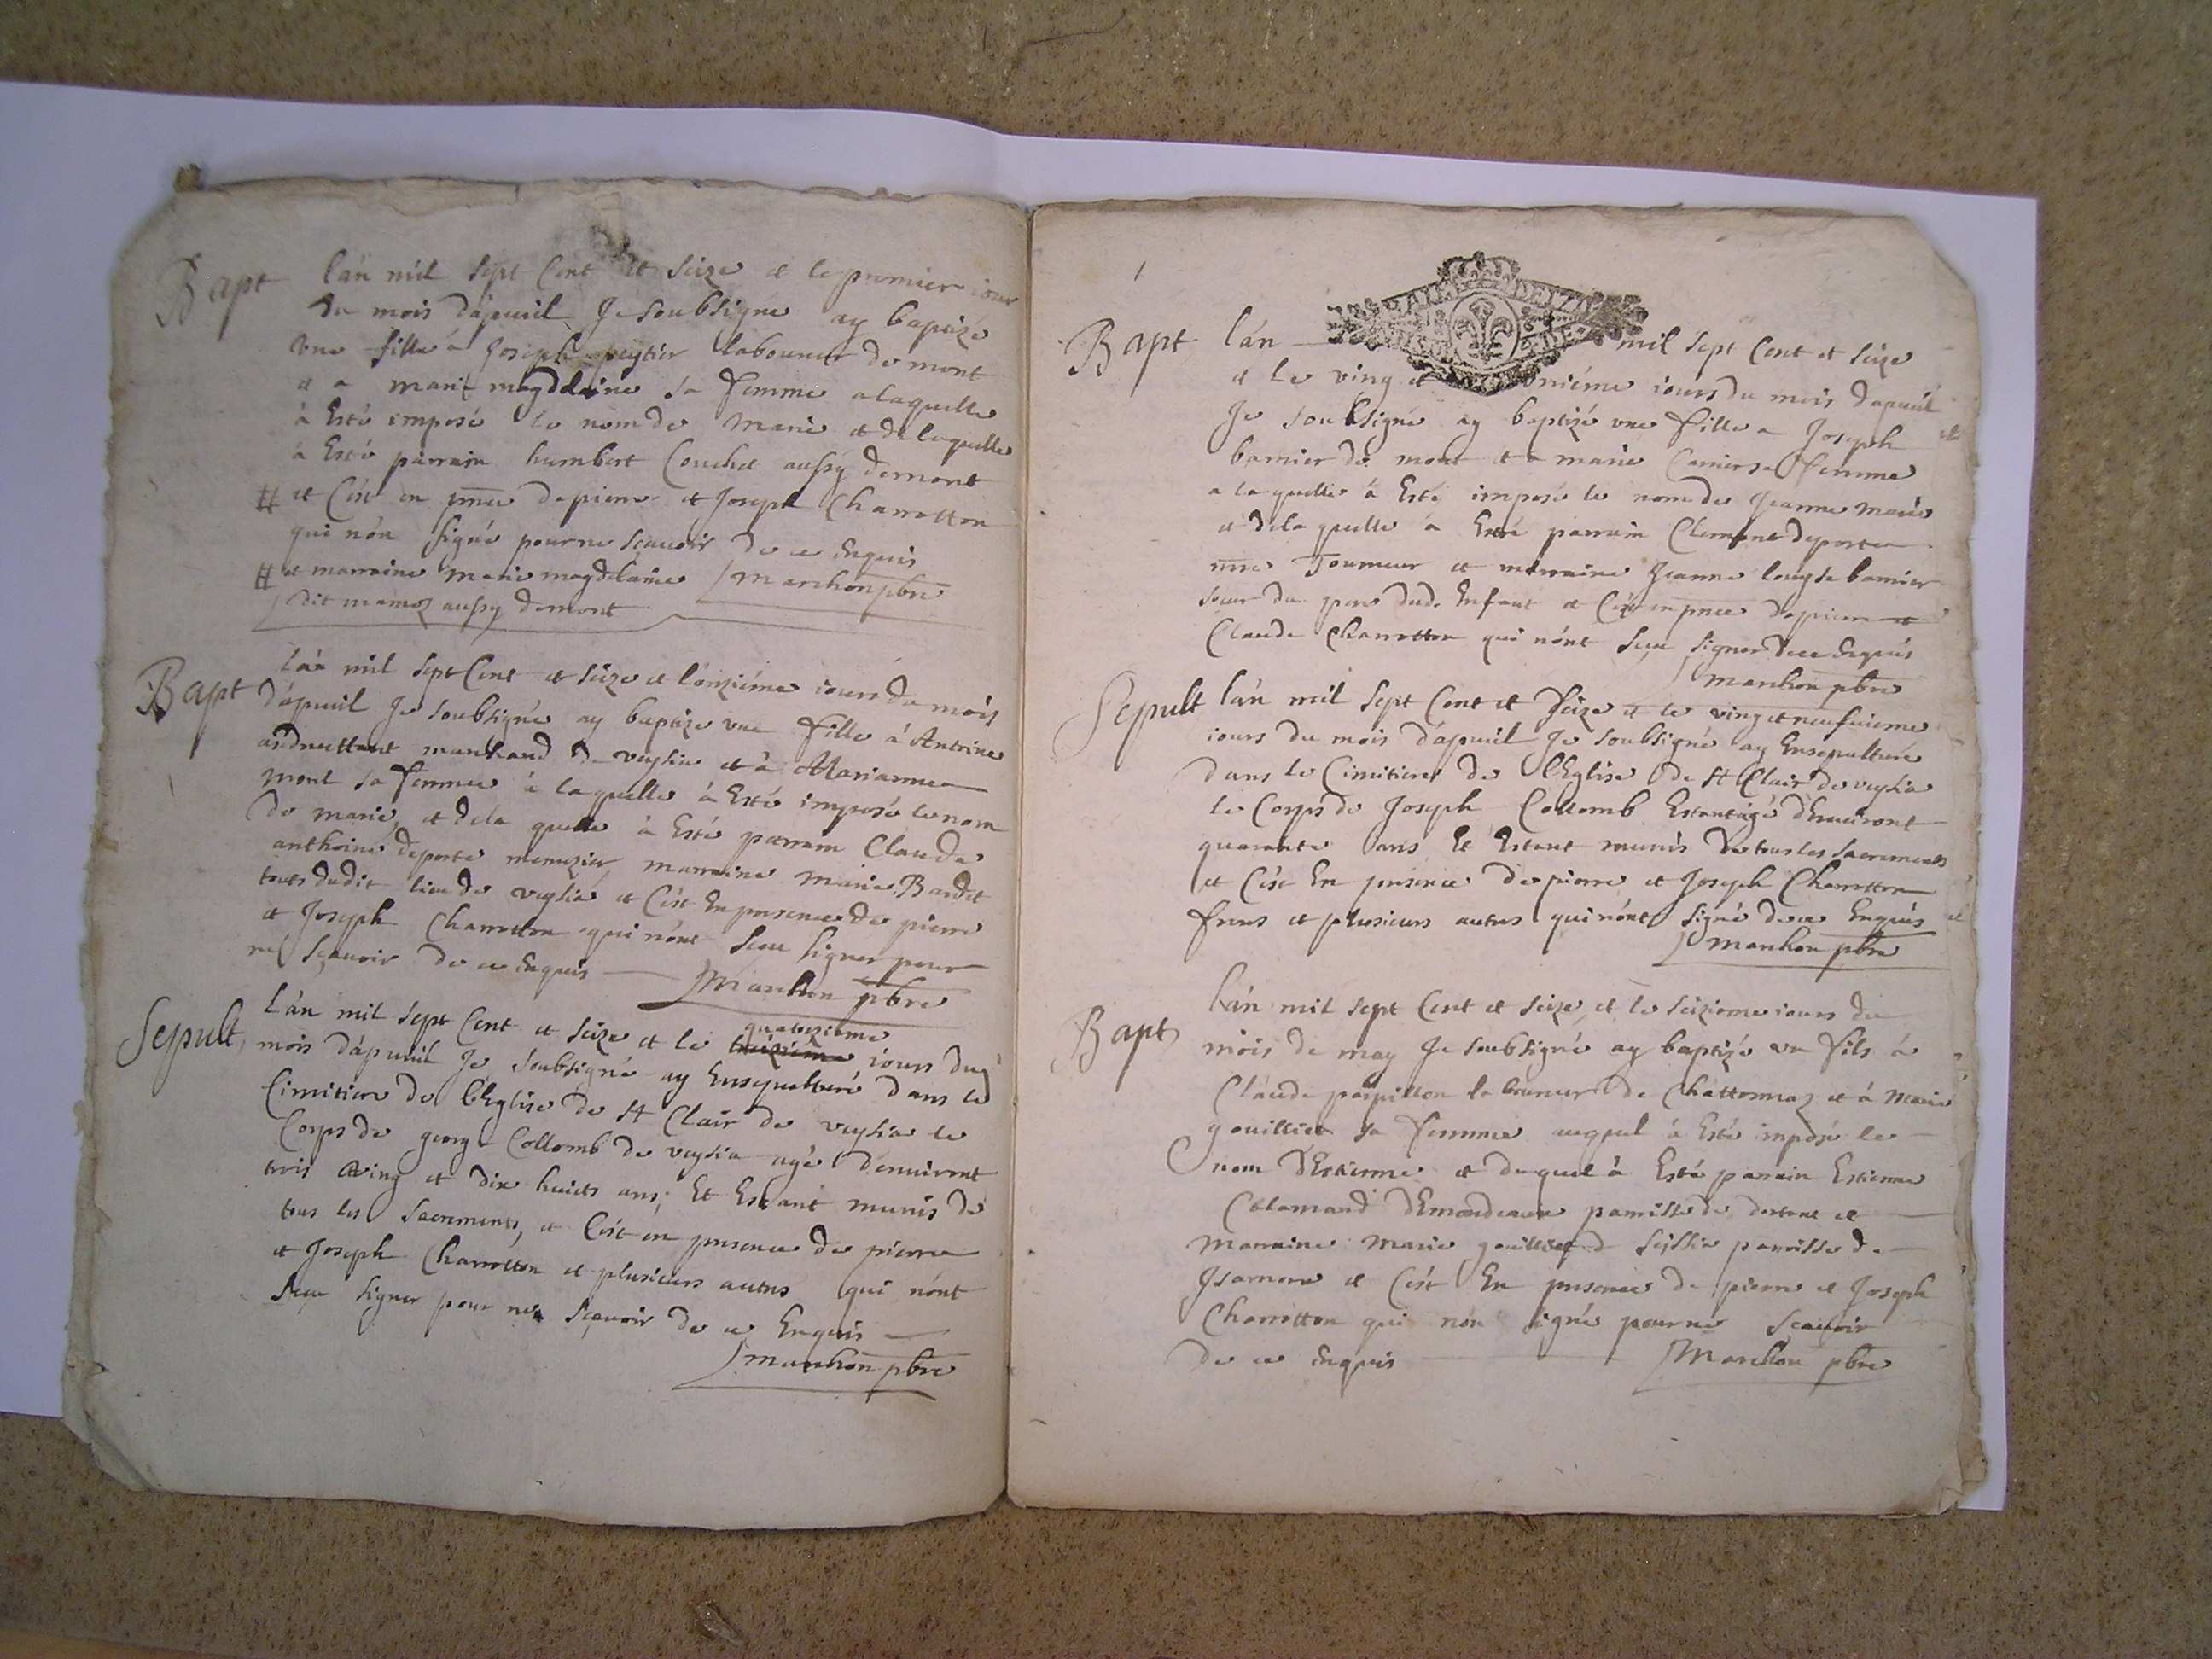 Bapt lán mil sept Cent et seize et le premier iour
du mois dápuril Je soubsigne ay baptizé
une fille á Joseph peytier laboureur de mont
et a marie magdelaine sa femme a laquelle
à Esté imposé le nom de Marie et de laquelle
à Esté parrain humbert Couchet aussy de mont
# et Cést en pnce de pierre et Joseph Charrotton
qui nón signé pour ne sçauoir de ce Enquis
# et marraine Marie magdelaine Marchon pbre
dit mamoz aussy de mont
Bapt lán mil sept Cent et seize et lónziéme iours du mois
dápuril Je soubsigné ay baptize une fille á Antoine
marchand de veysia et à Marianne
mont sa femme à laquelle à Esté imposé le nom
de marie, et de la quelle à Esté parrain Claude
anthoine deporte menuzier marraine Marie Bardet
touts dudit lieu de veysia et Cést En presence de pierre
et Joseph Charrotton qui nónt sceu signer pour
ne sçauoir de ce Enquis Marchon pbre
Sepult, Lán mil sept Cent et seize et le treiziéme quatorzieme iours du
mois dápuril Je soubsigné ay Ensepulturé dans le
Cimitiere de lEglise de St Clair de veysia le
Corps de george Collomb de veysia agé dénuiront
trois ving et dix huicts ans; Et Estant munis de
tous les sacrements, et Cést en presence de pierre
et Joseph Charrotton et plusieurs autres qui nónt
sceu signer pour ne sçauoir de ce Enquis
Marchon pbre
Bapt lán mil sept Cent et seize
et le ving et uniéme iours du mois dapuril
Je soubsigné ay baptizé une fille a Joseph
bamier de mont et a marie Camier sa femme
a la quelle à Esté imposé le nom de Jeanne Marie
et de la quelle à Esté parrain Clement deporte
mre Tourneur et marraine Jeanne louyse bamier
soeur du pere dud. Enfant et Cést en pnce de pierre et
Claude Charrotton qui nónt sceu signer de ce Enquis
Marchon pbre
Sepult lán mil sept Cent et seize et le ving et neufuieme
iours du mois dápuril Je soubsigné ay Ensepulturé
dans le Cimitiere de lEglise de St Clair de veysia
le Corps de Joseph Collomb Estant agé dEnuiront
quarante ans Et Estant munis de tous les sacrements
et Cést En presence de pierre et Joseph Charrotton
freres et plusieurs autres qui nónt signé de ce Enquis
Marchon pbre
Bapt lán mil sept Cent et seize, et le seizieme iours du
mois de may Je soubsigné ay baptizé un fils à
Claude papillon laboureur de Chattonnaz et à Marie
gouillier sa femme auquel à Esté imposé le
nom dEstienne et duquel à Esté parrain Estienne
parroisse de dortant et
Marraine Marie parroisse de
Jsarnore et Cést En presence de pierre et Joseph
Charrotton qui nón signé pour ne sçauoir
de ce Enquis Marchon pbre